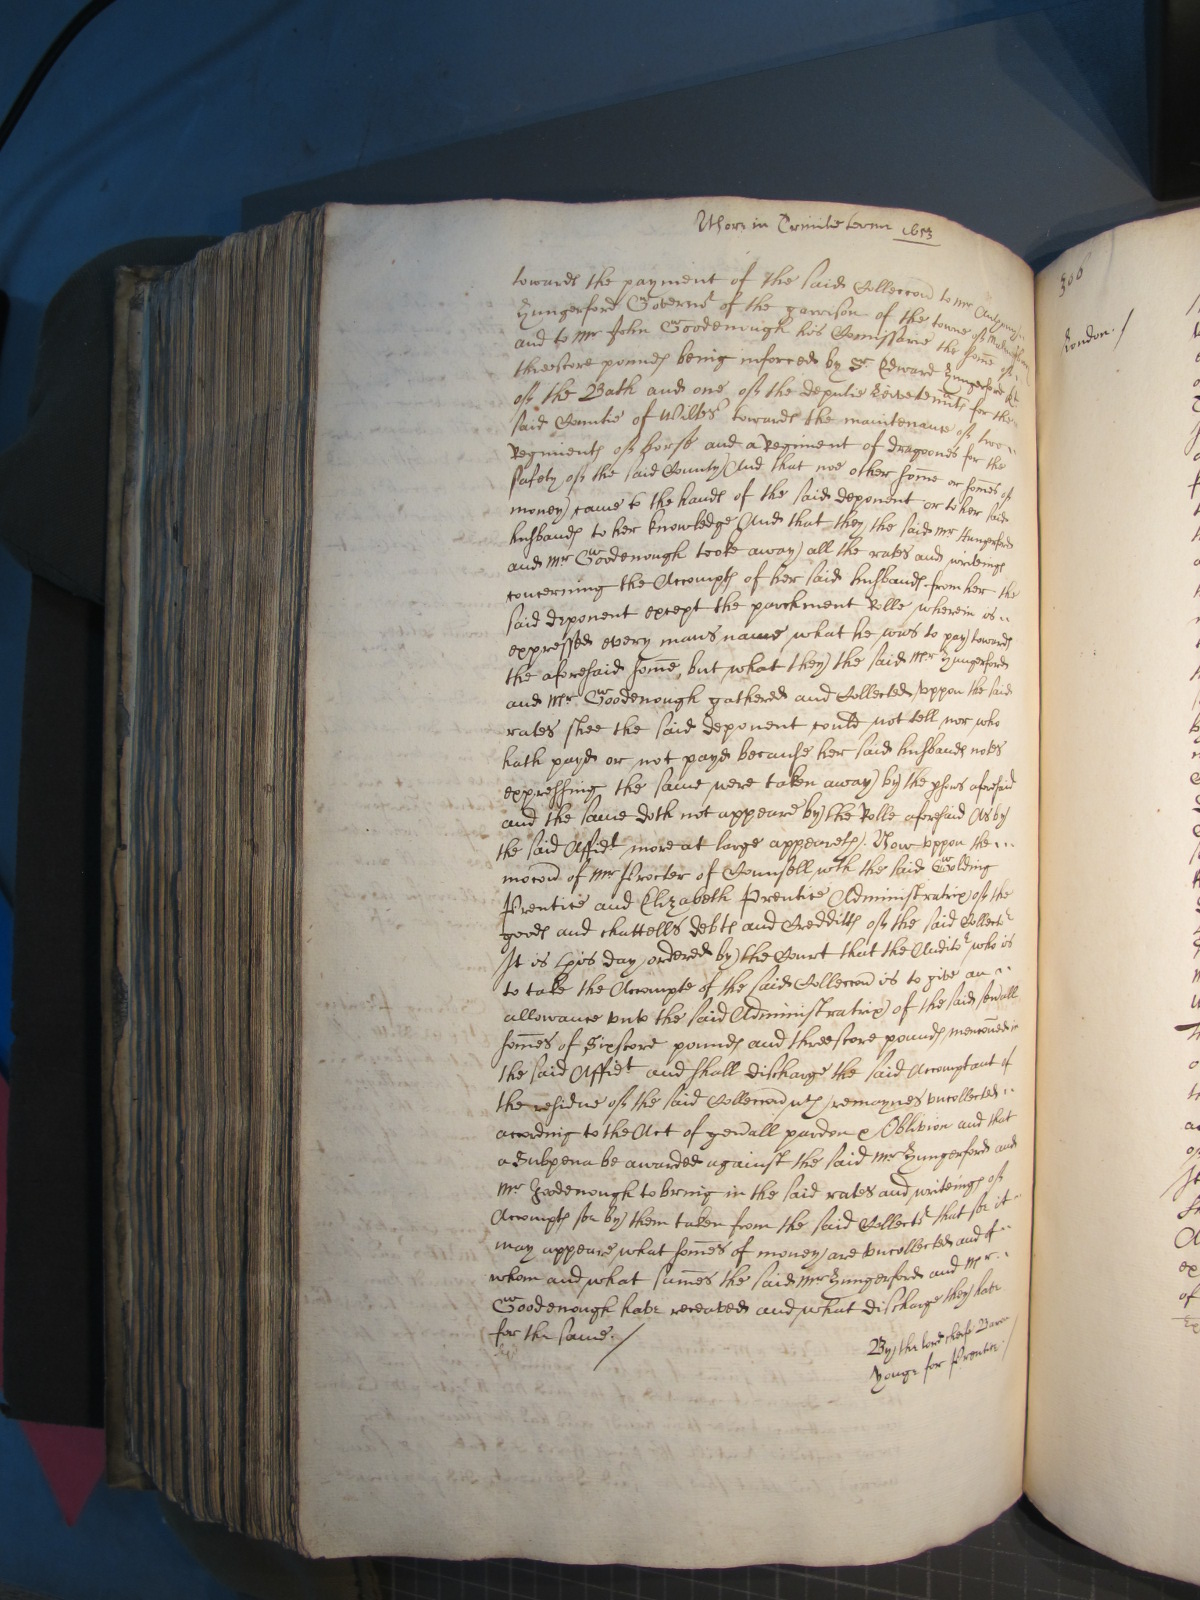 Adhuc in Trinitie terme 1653
towards the payment of the said Colleccon to Mr Anthony
Hungerford Governr of the garrison of the towne of Malmesbury
and to Mr John Goodenough his Comissarie the some of
threescore pounds being inforced by Sr Edward Hungerford Kt
of the Bath and one of the deputie Leivetennts for the
said Countie of Wiltes towards the maintenance of two
Regiments of horse and a Regiment of dragoones for the
safety of the said County And that noe other some or somes of
money came to the hands of the said deponent or to her said
husbands to her knowledge And that they the said Mr Hungerford
and Mr Goodenough tooke away all the rates and writeings
concerning the Accompts of her said husbands from her the
said deponent except the parchment Rolle wherein is
expressed every mans name what he was to pay towards
the aforesaid some, but what they the said Mr Hungerford
and Mr Goodenough gathered and Collected uppon the said
rates shee the said deponent could not tell nor who
hath payd or not payd because her said husbands notes
expressing the same were taken away by the psons aforesaid
and the same doth not appeare by the Rolle aforesaid As by
the said Affidt more at large appeareth. Now uppon the
mocon of Mr Procter of Counsell wth the said Golding
Prentice and Elizabeth Prentice Administratrix of the
goods and chattells debts and Creditts of the said Collectr
It is this day ordered by the Court that the Auditr who is
to take the Accompte of the said Colleccon is to give an
allowance unto the said Administratrix of the said sevall
somes of Sixscore pounds and threescore pounds mencioned in
the said Affidt and shall discharge the said Accomptant of
the residue of the said Colleccon wch remaynes uncollected
according to the Act of genall pardon & Oblivion and that
a Subpena be awarded against the said Mr Hungerford and
Mr Goodenough to bring in the said rates and writeings of
Accompts soe by them taken from the said Collectr that soe it
may appeare what somes of money are uncollected and of
whom and what sumes the said Mr Hungerford and Mr
Goodenough have receaved and what discharge they have
for the same. /
By the lord cheife Baron
Yonge for Prentice /
306
London. /